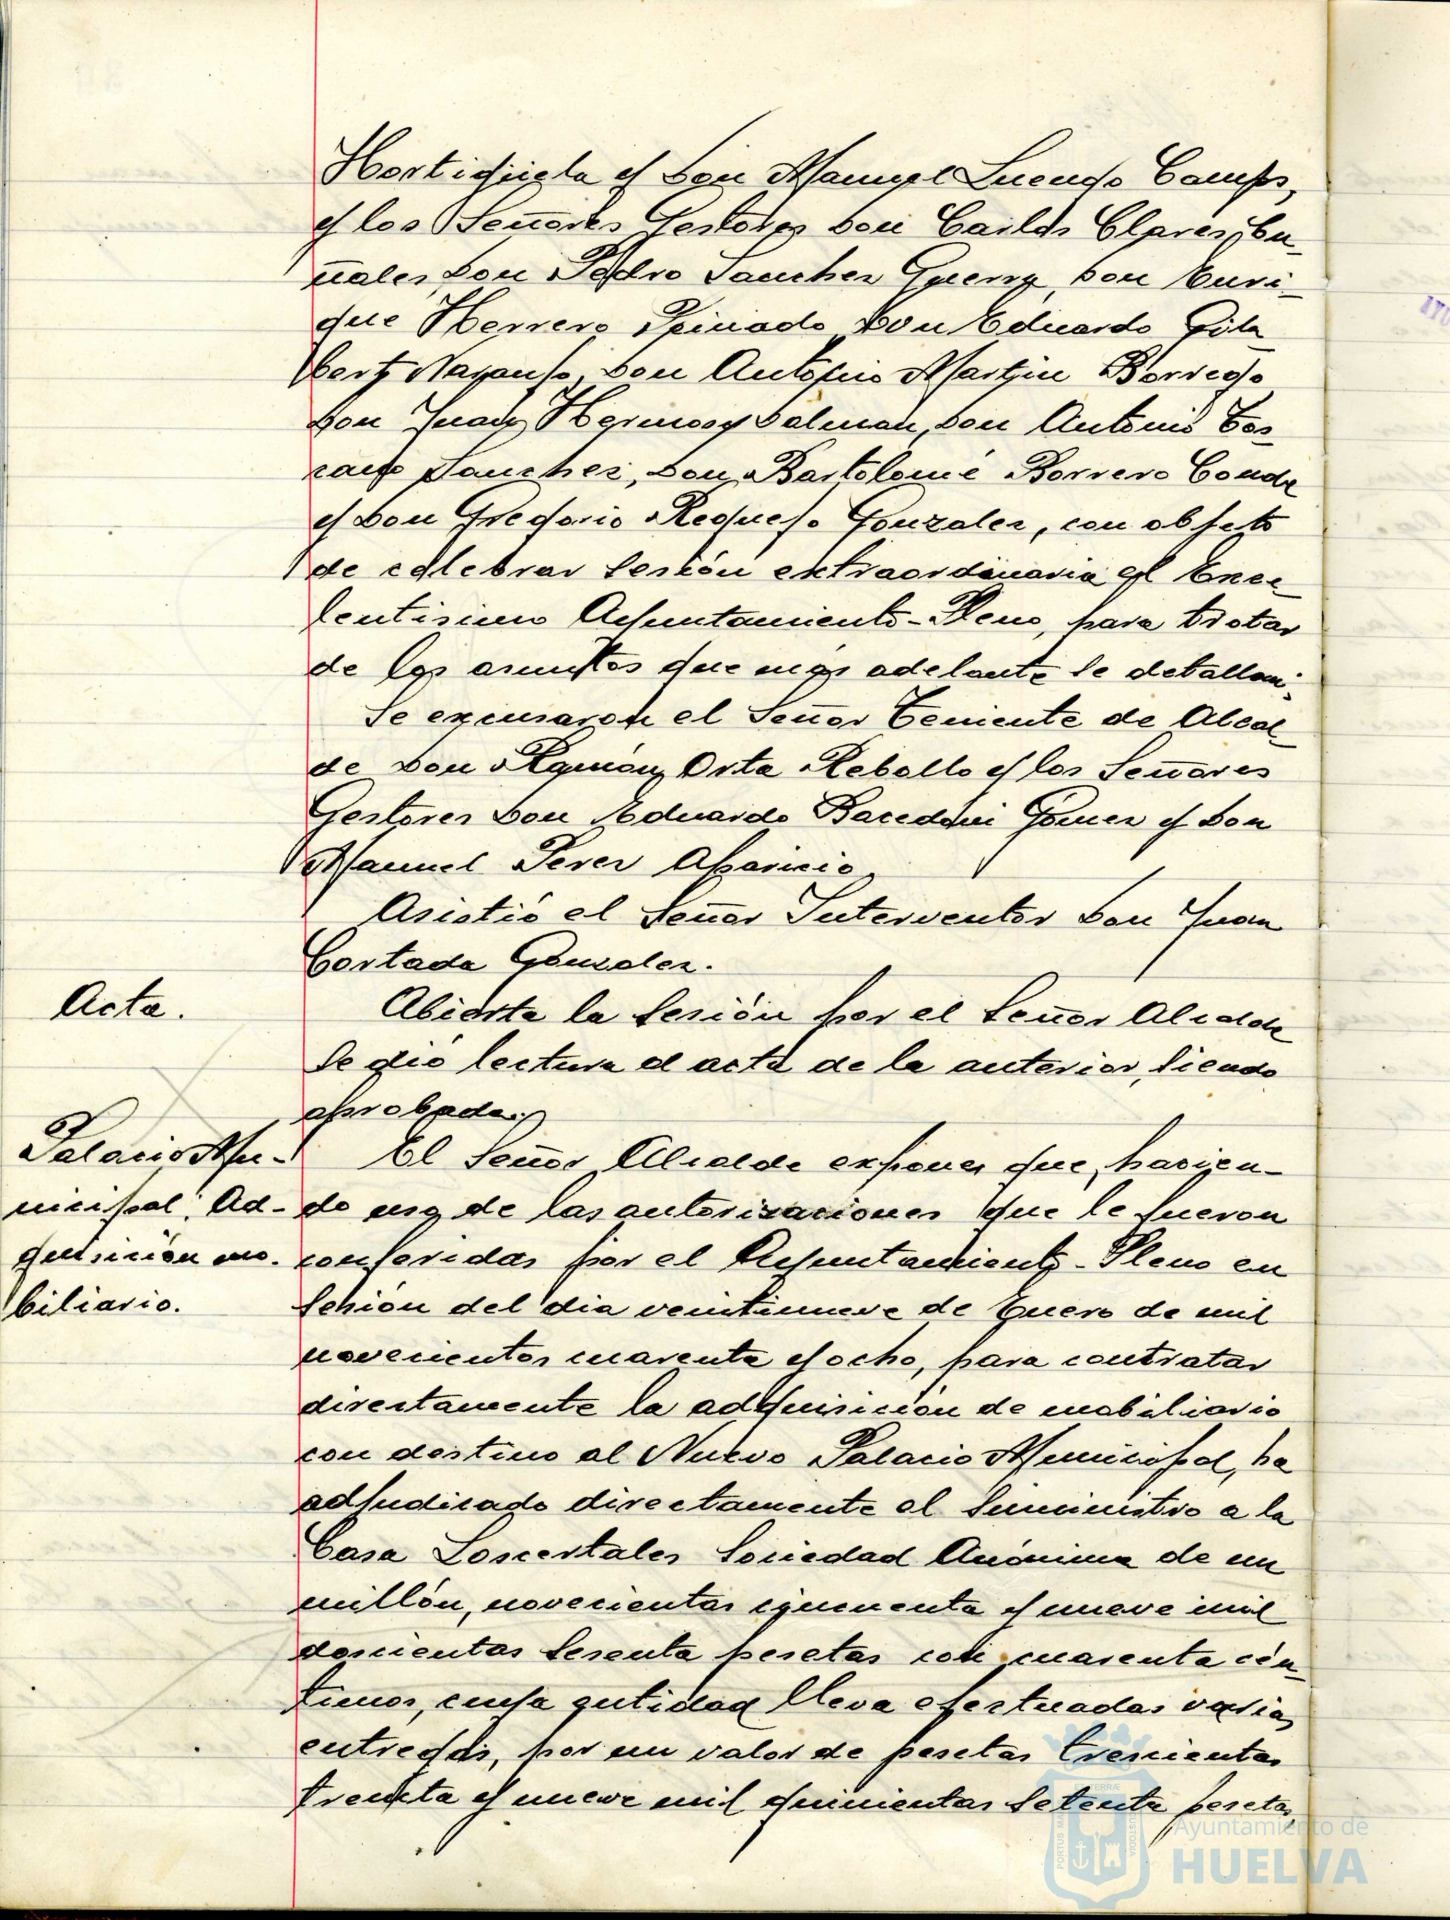 Hortigüela y Don Manuel Luengo Camps,
y los Señores Gestores Don Carlos Clares Cu-
ñales, Don Pedro Sanchez Guerra, Don Enri-
que Herrero Peinado, Don Eduardo Gila-
bert Naranjo, Don Antonio Martin Borrego
Don Juan Hermosa Dalman, Don Antonio Tos-
cano Sanchez, Don Bartolomé Borrero Conde
y Don Gregorio Requejo Gonzalez, con objeto
de celebrar sesión extraordinaria el Exce-
lentisimo Ayuntamiento-Pleno, para tratar
de los asuntos que mas adelante se detallan.
Se excusaron el Señor Teniente de Alcal-
de Don Ramón Orta Rebollo y los Señores
Gestores Don Eduardo Gómez y Don
Manuel Perez Aparicio
Asistió el Señor Interventor Don Juan
Cortada Gonzalez.
Acta.
Abierta la sesión por el Señor Alcalde
se dió lectura al acta de la anterior, siendo
aprobada.
Palacio Mu-
nicipal: Ad-
quisición mo-
biliario.
El Señor Alcalde expones que, hacien-
do uso de las autorizaciones que le fueron
conferidas por el Ayuntamiento-Pleno en
sesión del dia veintinueve de Enero de mil
novecientos cuarenta y ocho, para contratar
directamente la adquisición de mobiliario
con destino al Nuevo Palacio Municipal, ha
adjudicado directamente el suministro a la
Casa Loscertales Sociedad Anónima de un
millón, novecientas cincuenta y nueve mil
doscientas sesenta pesetas con cuarenta cén-
timos, cuya entidad lleva efectuadas varias
entregas, por un valor de pesetas trescientas
treinta y nueve mil quinientas setenta pesetas,
Ayuntamiento de
HUELVA